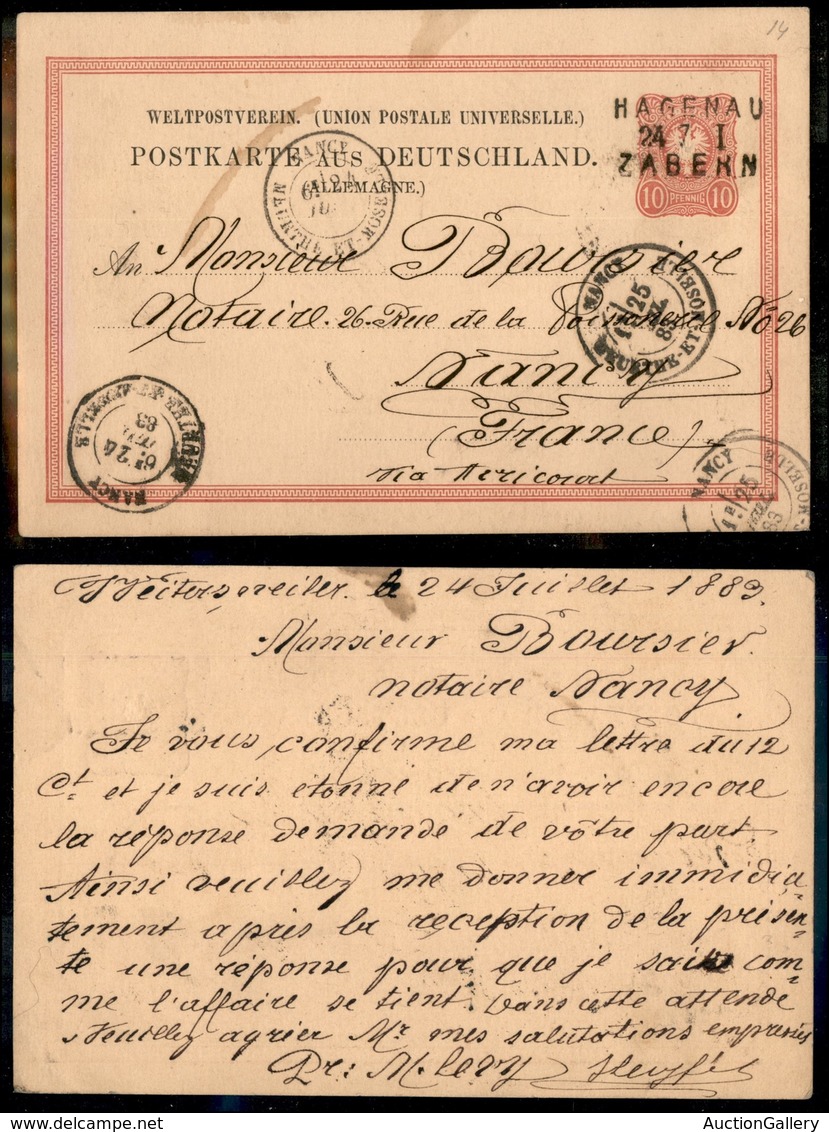 14
WELTPOSTVEREIN. (UNION POSTALE UNIVERSELLE.)
POSTKARTE AUS DEUTSCHLAND.
(ALLEMAGNE.)
HAGENAU
24 7 I
ZABERN
10 PFENNIG 10
NANCY
MEURTHE ET-MOSELLE
6E 24
An Monsieur Boursier
Notaire. 26. Rue de la No 26
Nancy
(France)
via Avricourt
NANCY
25
JUIL
83
MEURTHE-ET-MOSELLE
MEURTHE-ET-MOSELLE
6E 24
JUIL
83
NANCY
NANCY
1E 25
JUIL
83
MOSELLE
Weitersweiler. le 24 Juillet 1883.
Monsieur Boursier.
notaire Nancy
Je vous confirme ma lettre du 12
Ct et je suis etonne de n'avoir encore
la réponse demandé de vôtre part
Ainsi veuillez me donner immidia-
tement après la reception de la présen-
te une réponse pour que je sais com-
me l'affaire se tient. Dans cette attende
Veuillez agrier Mr mes salutations empresées
Pr: M. Levy
AuctionGallery